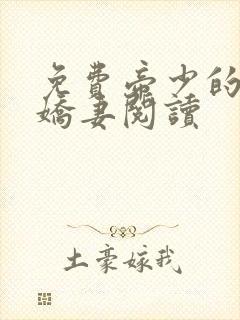 免費帝少的
嬌妻閱讀
土豪嫁我